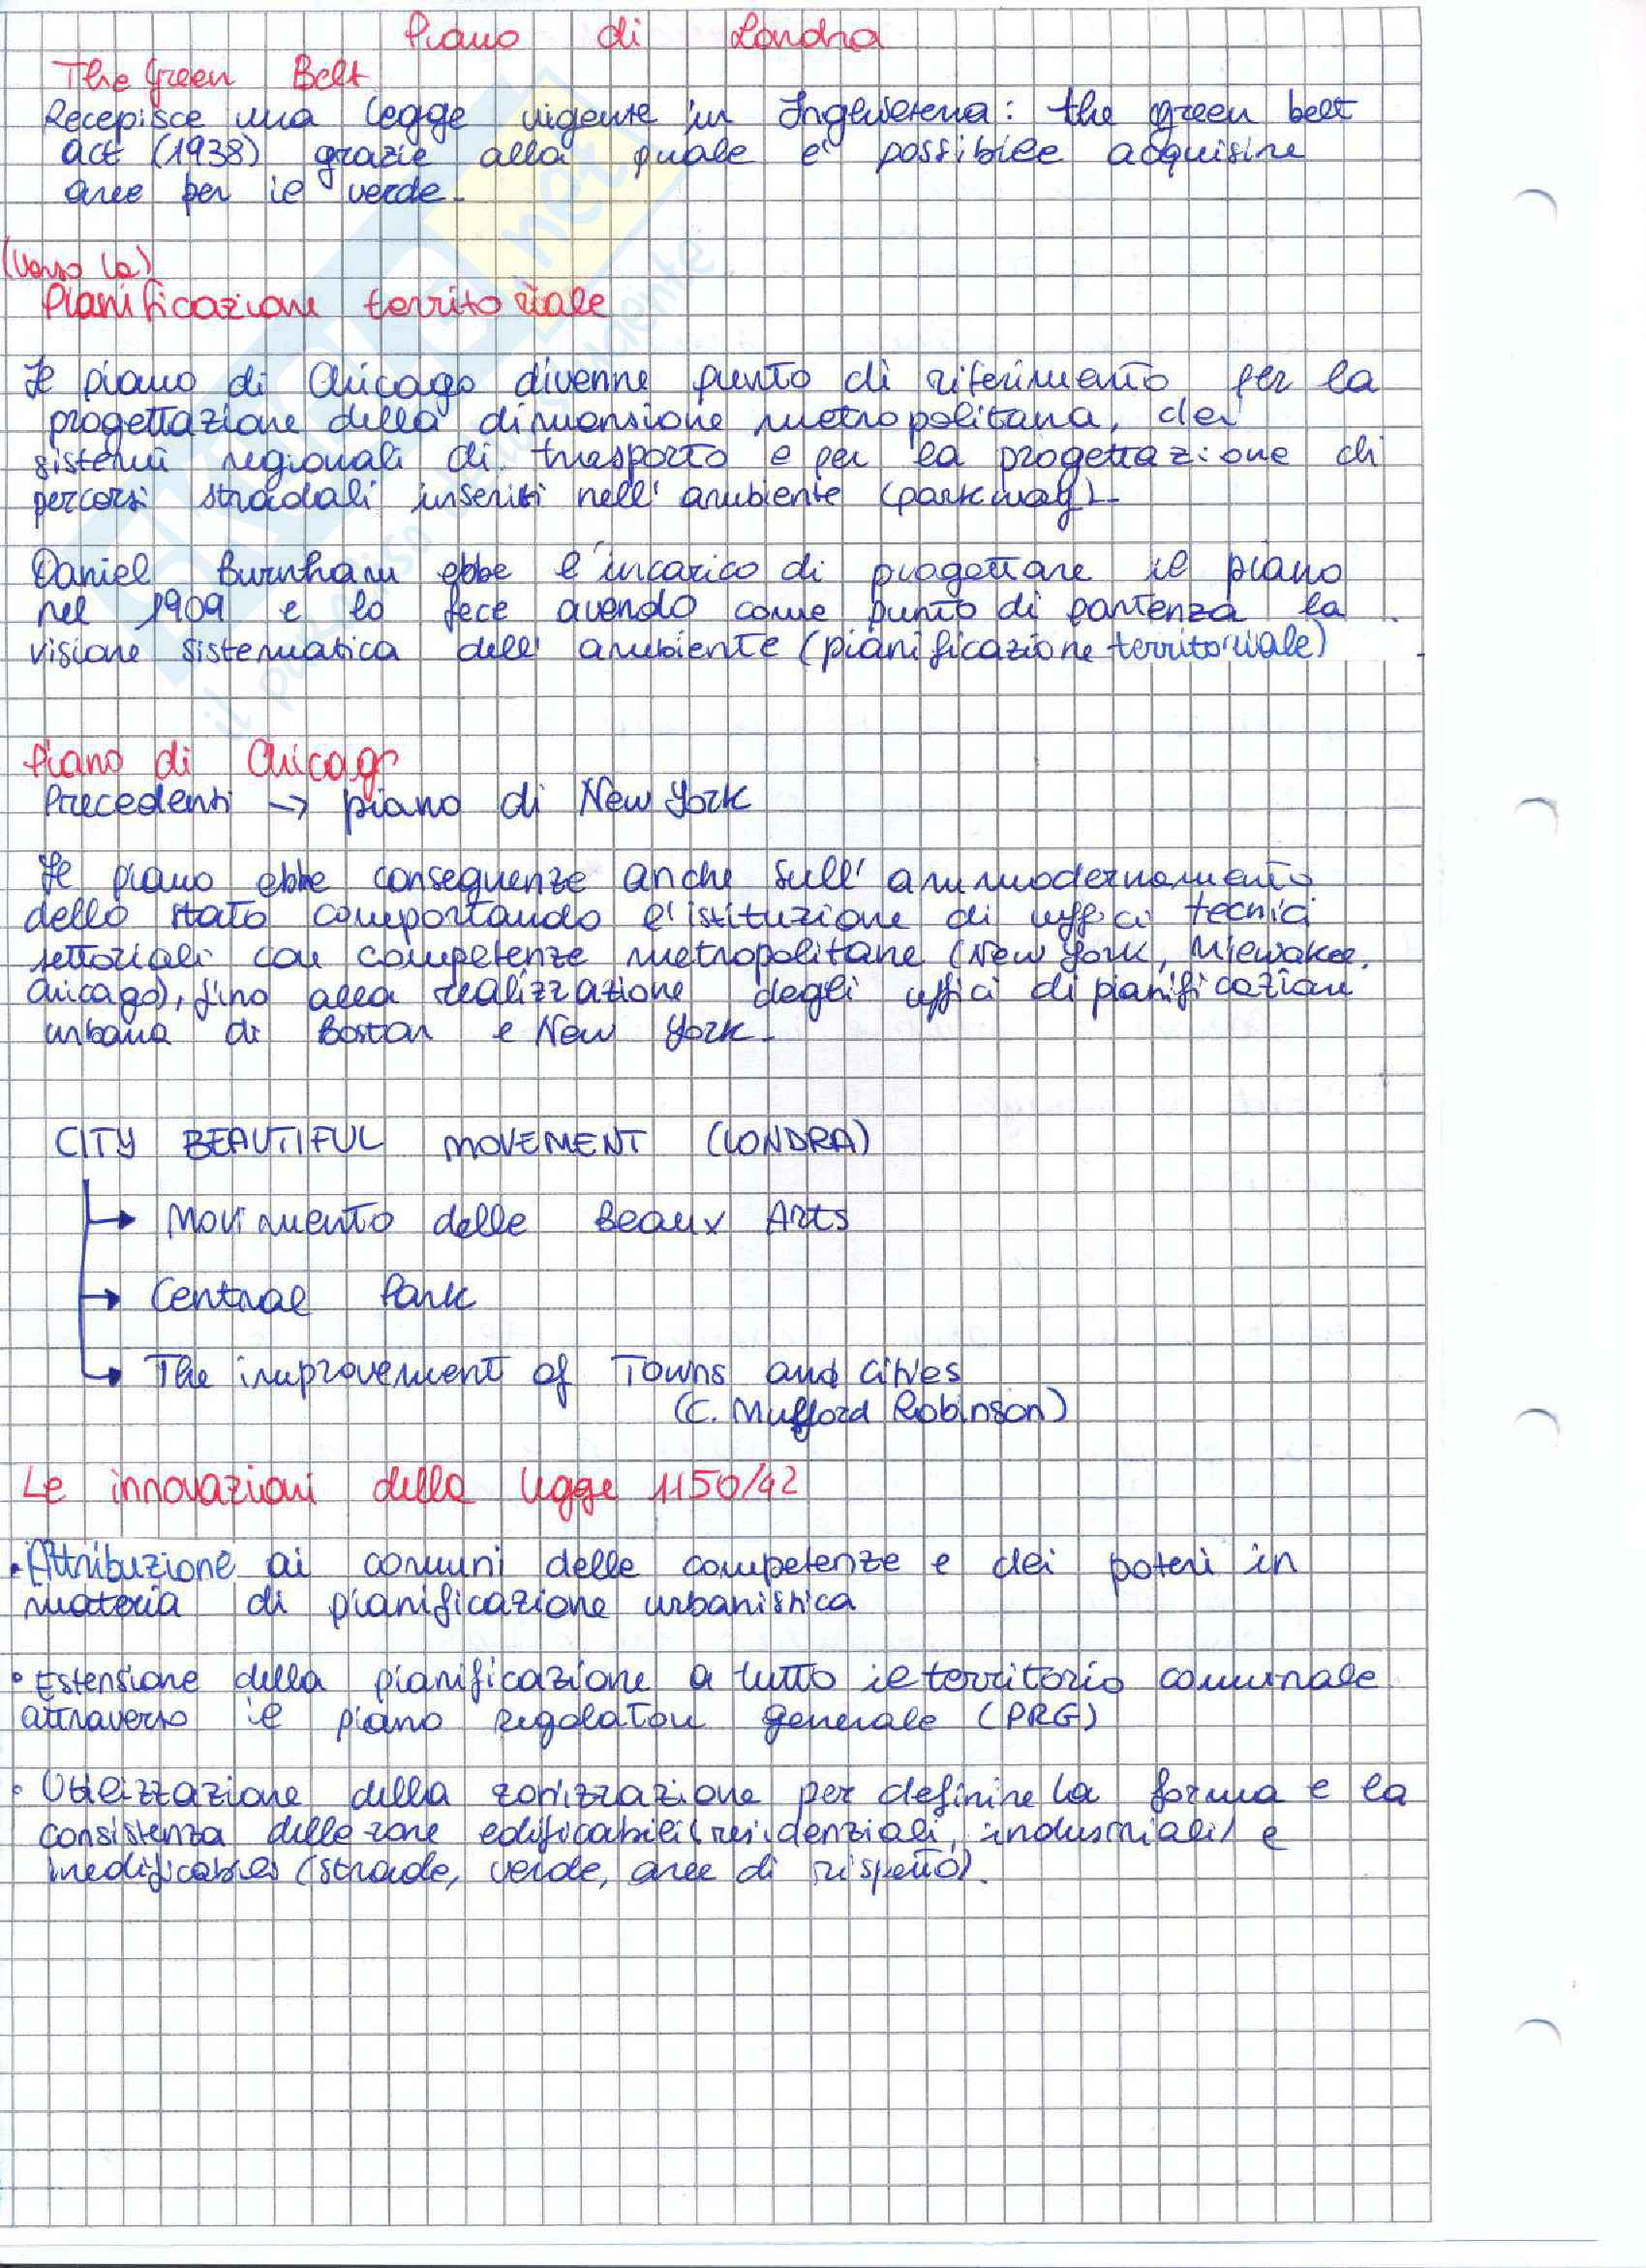 Piano di Londra
The Green Belt
Recepisce una legge vigente in Inghilterra: the green belt
act (1938) grazie alla quale è possibile acquisire
aree per il verde.
(verso la)
Pianificazione territoriale
Il piano di Chicago divenne punto di riferimento per la
progettazione della dimensione metropolitana, dei
sistemi regionali di trasporto e per la progettazione di
percorsi stradali inseriti nell'ambiente (parkway).
Daniel Burnham ebbe l'incarico di progettare il piano
nel 1909 e lo fece avendo come punto di partenza la
visione sistematica dell'ambiente (pianificazione territoriale).
Piano di Chicago
Precedenti → piano di New York
Il piano ebbe conseguenze anche sull'ammodernamento
dello stato comportando l'istituzione di uffici tecnici
settoriali con competenze metropolitane (New York, Milwakee,
Chicago), fino alla realizzazione degli uffici di pianificazione
urbana di Boston e New York.
CITY BEAUTIFUL MOVEMENT (LONDRA)
→ Movimento delle Beaux Arts
→ Central Park
→ The improvement of Towns and cities
(C. Mufford Robinson)
Le innovazioni della legge 1150/42
• Attribuzione ai comuni delle competenze e dei poteri in
materia di pianificazione urbanistica
• Estensione della pianificazione a tutto il territorio comunale
attraverso il piano regolatore generale (PRG)
• Utilizzazione della zonizzazione per definire la forma e la
consistenza delle zone edificabili (residenziali, industriali) e
inedificabili (strade, verde, aree di rispetto).